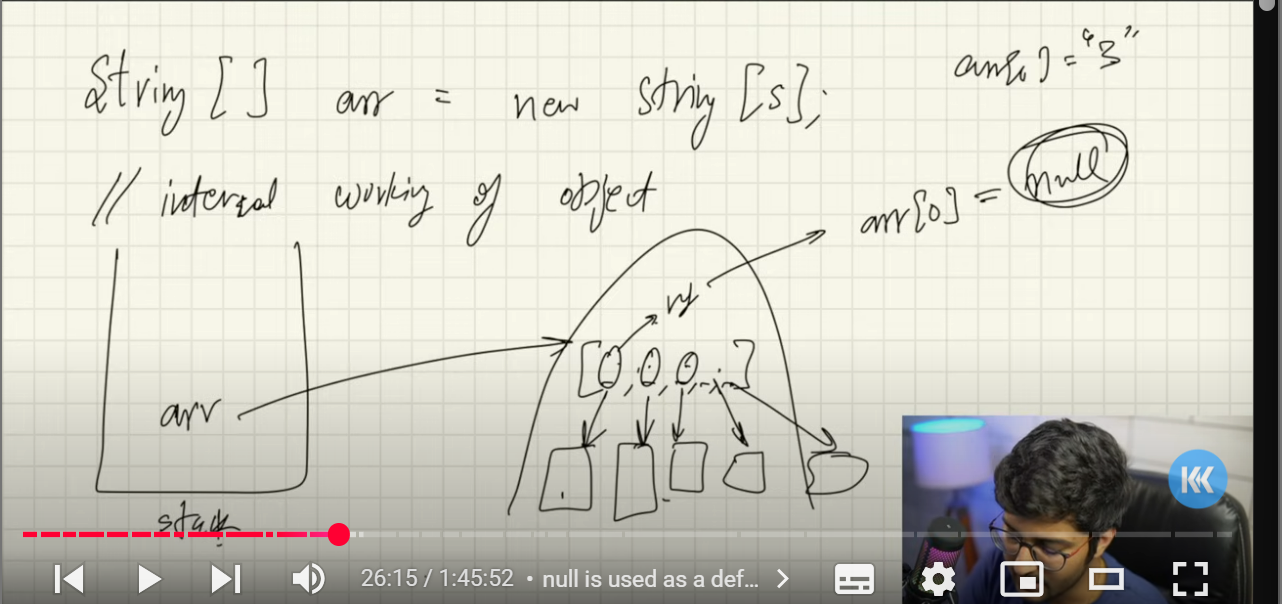 String [ ] arr = new String [5];
arr[0] = "3"
// internal working of object
arr[0] = null
arr
[0, 0, 0, , ]
stack
26:15 / 1:45:52 • null is used as a def...